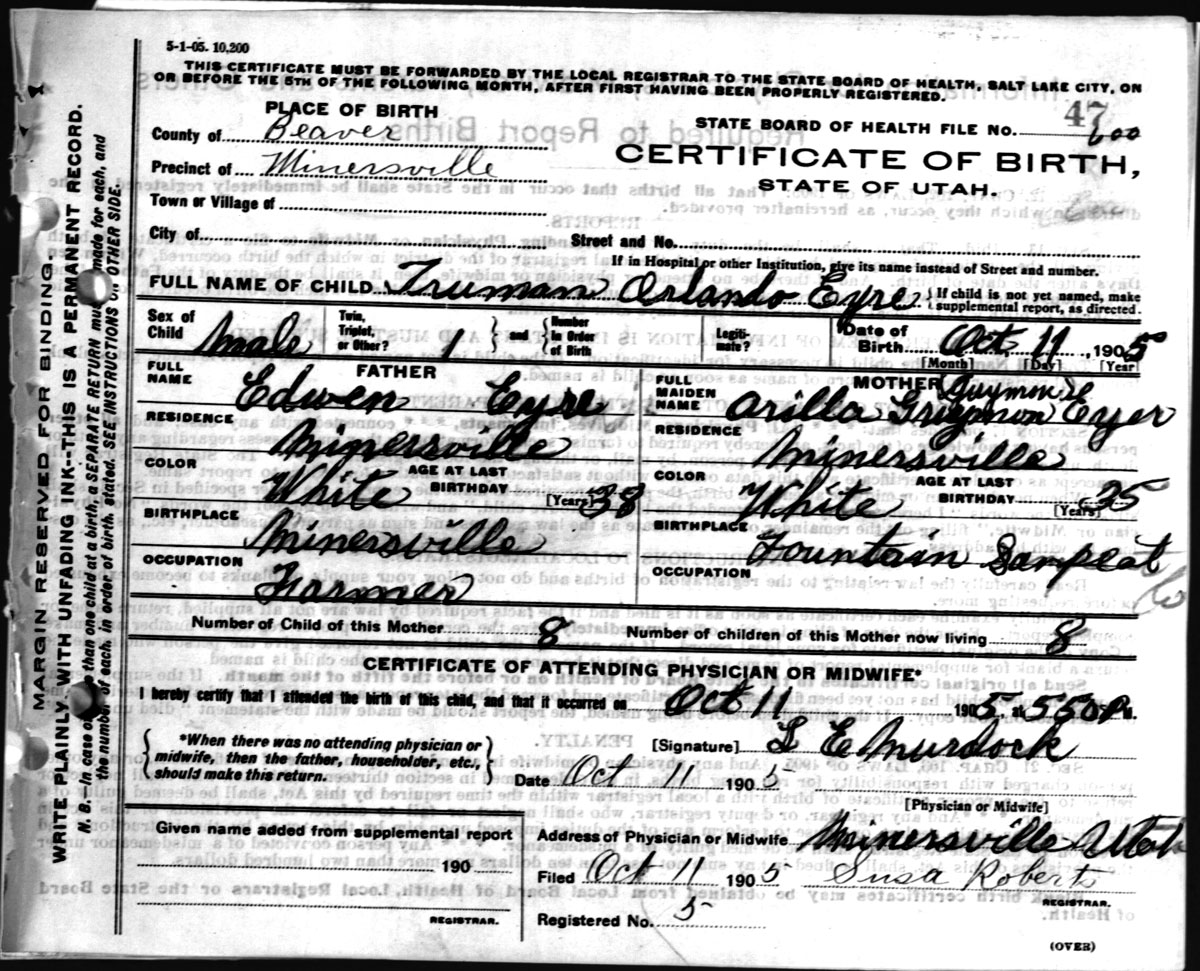 5-1-05. 10,200
THIS CERTIFICATE MUST BE FORWARDED BY THE LOCAL REGISTRAR TO THE STATE BOARD OF HEALTH, SALT LAKE CITY, ON
OR BEFORE THE 5TH OF THE FOLLOWING MONTH, AFTER FIRST HAVING BEEN PROPERLY REGISTERED.
PLACE OF BIRTH
County of Beaver
Precinct of Minersville
Town or Village of
City of
STATE BOARD OF HEALTH FILE NO. 47
600
CERTIFICATE OF BIRTH,
STATE OF UTAH.
Street and No.
If in Hospital or other Institution, give its name instead of Street and number.
FULL NAME OF CHILD Truman Orlando Eyre } If child is not yet named, make supplemental report, as directed.
Sex of Child Male
Twin, Triplet, or Other? 1 } and { Number in Order of Birth
Legitimate?
Date of Birth Oct 11, 1905
[Month] [Day] [Year]
FATHER
FULL NAME Edwen Eyre
RESIDENCE Minersville
COLOR White
AGE AT LAST BIRTHDAY 38
[Years]
BIRTHPLACE Minersville
OCCUPATION Farmer
MOTHER
FULL MAIDEN NAME Arilla Eyer
RESIDENCE Minersville
COLOR White
AGE AT LAST BIRTHDAY 35
[Years]
BIRTHPLACE Fountain Sampeat
OCCUPATION
Number of Child of this Mother 8
Number of children of this Mother now living 8
CERTIFICATE OF ATTENDING PHYSICIAN OR MIDWIFE*
I hereby certify that I attended the birth of this child, and that it occurred on Oct 11 1905, at 550 P M.
{ *When there was no attending physician or
midwife, then the father, householder, etc.,
should make this return. }
[Signature] L E Murdock
Date Oct 11 1905
[Physician or Midwife]
Given name added from supplemental report
190
REGISTRAR.
Address of Physician or Midwife Minersville Utah
Filed Oct 11 1905 Susa Roberts
REGISTRAR.
Registered No. 5
(OVER)
MARGIN RESERVED FOR BINDING.
WRITE PLAINLY, WITH UNFADING INK--THIS IS A PERMANENT RECORD.
N. B.--In case of more than one child at a birth, a SEPARATE RETURN must be made for each, and
the number of each, in order of birth, stated. SEE INSTRUCTIONS ON OTHER SIDE.